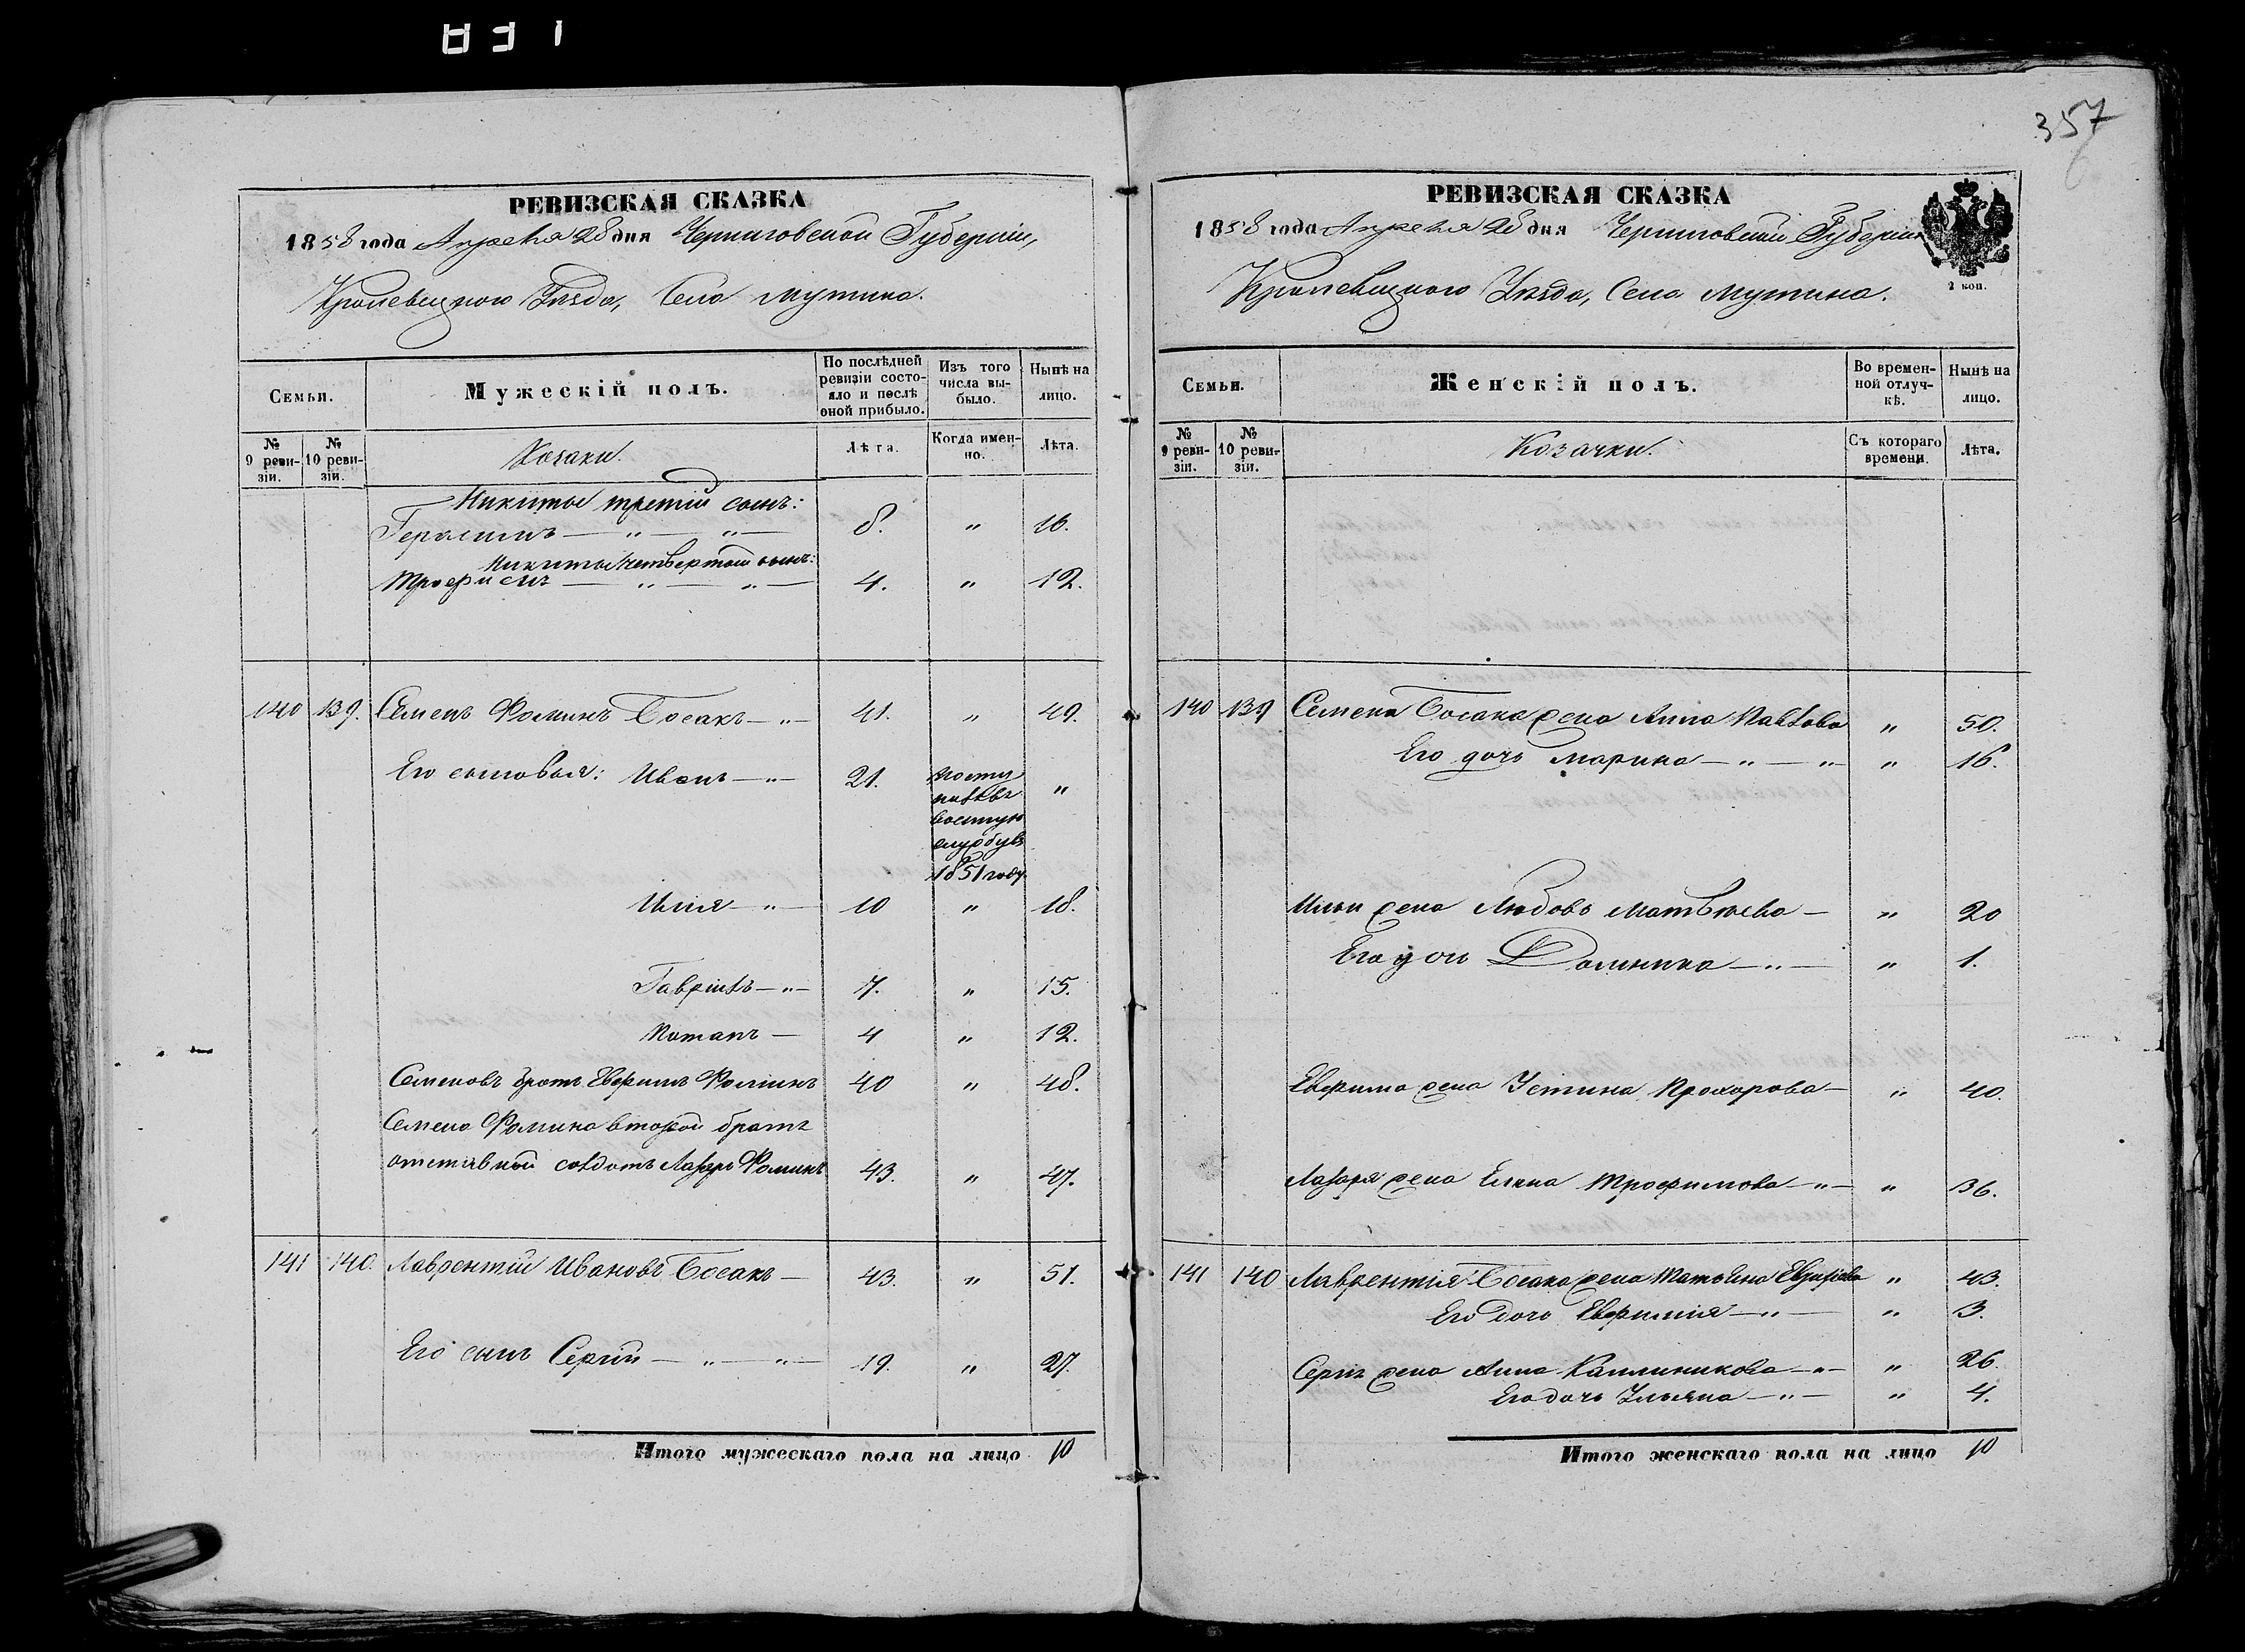 831
357
РЕВИЗСКАЯ СКАЗКА
1858 года Апреля 28 дня Черниговской Губерніи,
Кролевецкого Уѣзда, Села Мутина.
Семьи.
Мужескій полъ.
По послѣдней ревизіи состояло и послѣ оной прибыло.
Изъ того числа выбыло.
Нынѣ на лицо.
№ 9 ревизіи.
№ 10 ревизіи.
Козаки.
Лѣта.
Когда именно.
Лѣта.
Никиты третій сынъ:
Герасимъ — „ — „ — 8. „ 16.
Никиты четвертый сынъ:
Трофимъ — „ — „ — 4. „ 12.
140 139. Семенъ Фоминъ Босакъ — „ — 41. „ 49.
Его сыновья: Иванъ — „ — 21. „
поступилъ въ
военную
службу въ
1851 году.
Илія — „ — 10 „ 18.
Гавріилъ — „ — 7. „ 15.
Потапъ — 4 „ 12.
Семеновъ братъ Евфимъ Фоминъ 40 „ 48.
Семена Фомина второй братъ
отставной солдатъ Лазарь Фоминъ 43. „ 47.
141 140. Лаврентій Ивановъ Босакъ — 43. „ 51.
Его сынъ Сергій — „ — „ — 19. „ 27.
Итого мужескаго пола на лицо 10
РЕВИЗСКАЯ СКАЗКА
1858 года Апреля 28 дня Черниговской Губерніи
2 коп.
Кролевецкого Уѣзда, Села Мутина.
Семьи.
Женскій полъ.
Во временной отлучкѣ.
Нынѣ на лицо.
№ 9 ревизіи.
№ 10 ревизіи.
Козачки.
Съ котораго времени.
Лѣта.
140 139 Семена Босака жена Анна Павлова „ 50.
Его дочь Марина — „ — „ „ 16.
Ильи жена Любовь Матвѣева — „ 20
Его дочь Домникa — „ — „ 1.
Евфима жена Устина Прохорова — „ 40.
Лазаря жена Елена Трофимова — „ — „ 36.
141 140 Лаврентія Босака жена Татьяна „ 43.
Его дочь Евфимія — „ — „ 3.
Сергія жена Анна Каллиникова — „ — „ 26.
Его дочь Ульяна — „ — „ 4.
Итого женскаго пола на лицо 10